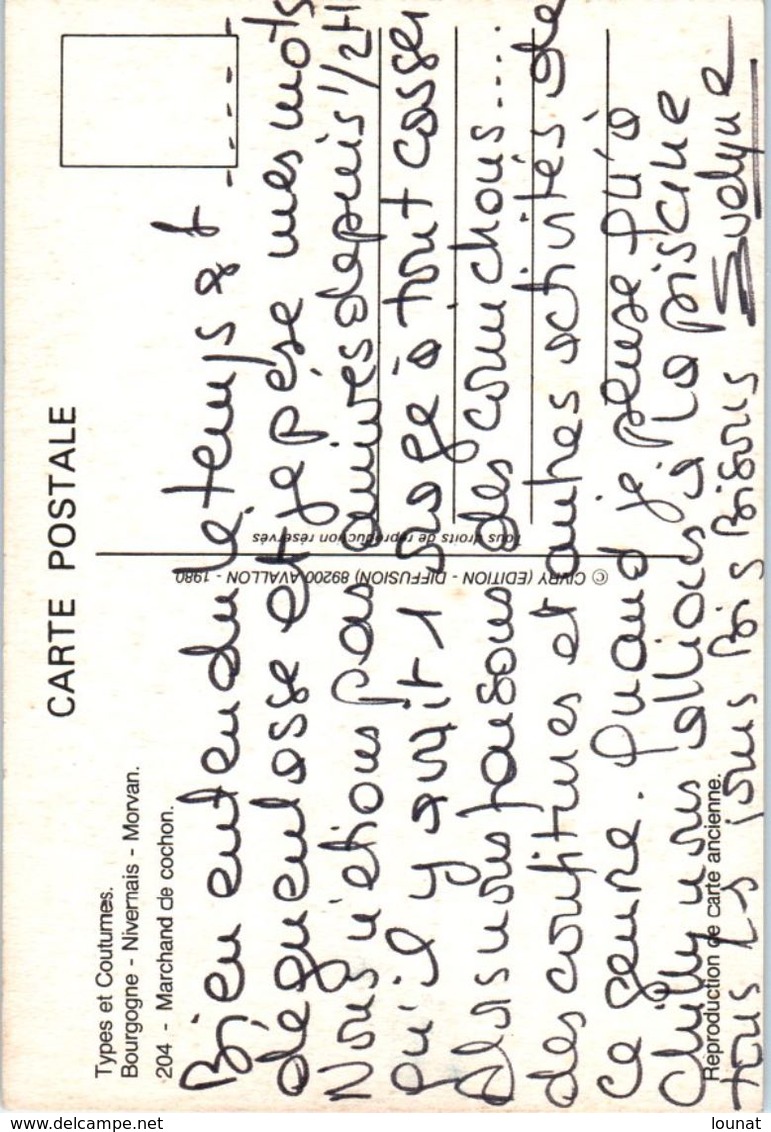 CARTE POSTALE
Types et Coutumes.
Bourgogne - Nivernais - Morvan.
204 - Marchand de cochon.
Bien entendu le temps est
dégueulasse et je pèse mes mots
Nous n'étions pas arrivés depuis 1/2H
qu'il y avait 1 orage à tout casser
Alors nous faisons des cornichons....
des confitures et autres activités de
ce genre. Quand je pense qu'à
Chilly nous allions à la piscine
tous les jours Bis Bisous Evelyne
Reproduction de carte ancienne.
© CIVRY (EDITION - DIFFUSION) 89200 AVALLON - 1980
Tous droits de reproduction réservés
www.delcampe.net
lounat